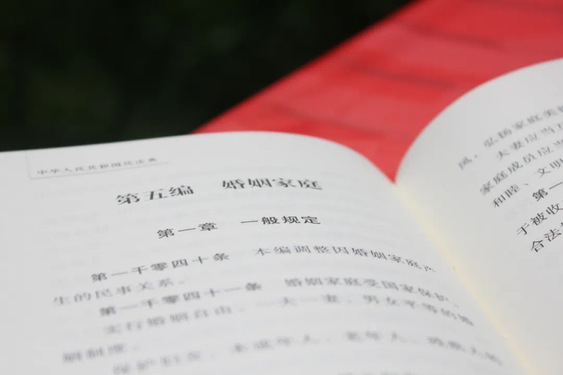 中华人民共和国民法典
第五编 婚姻家庭
第一章 一般规定
第一千零四十条 本编调整因婚姻家庭产
生的民事关系。
第一千零四十一条 婚姻家庭受国家保护。
实行婚姻自由、一夫一妻、男女平等的婚
姻制度。
保护妇女、未成年人、老年人、残疾人的
风，弘扬家庭美
夫妻应当
家庭成员应
和睦、文明
第一
于被收
合法